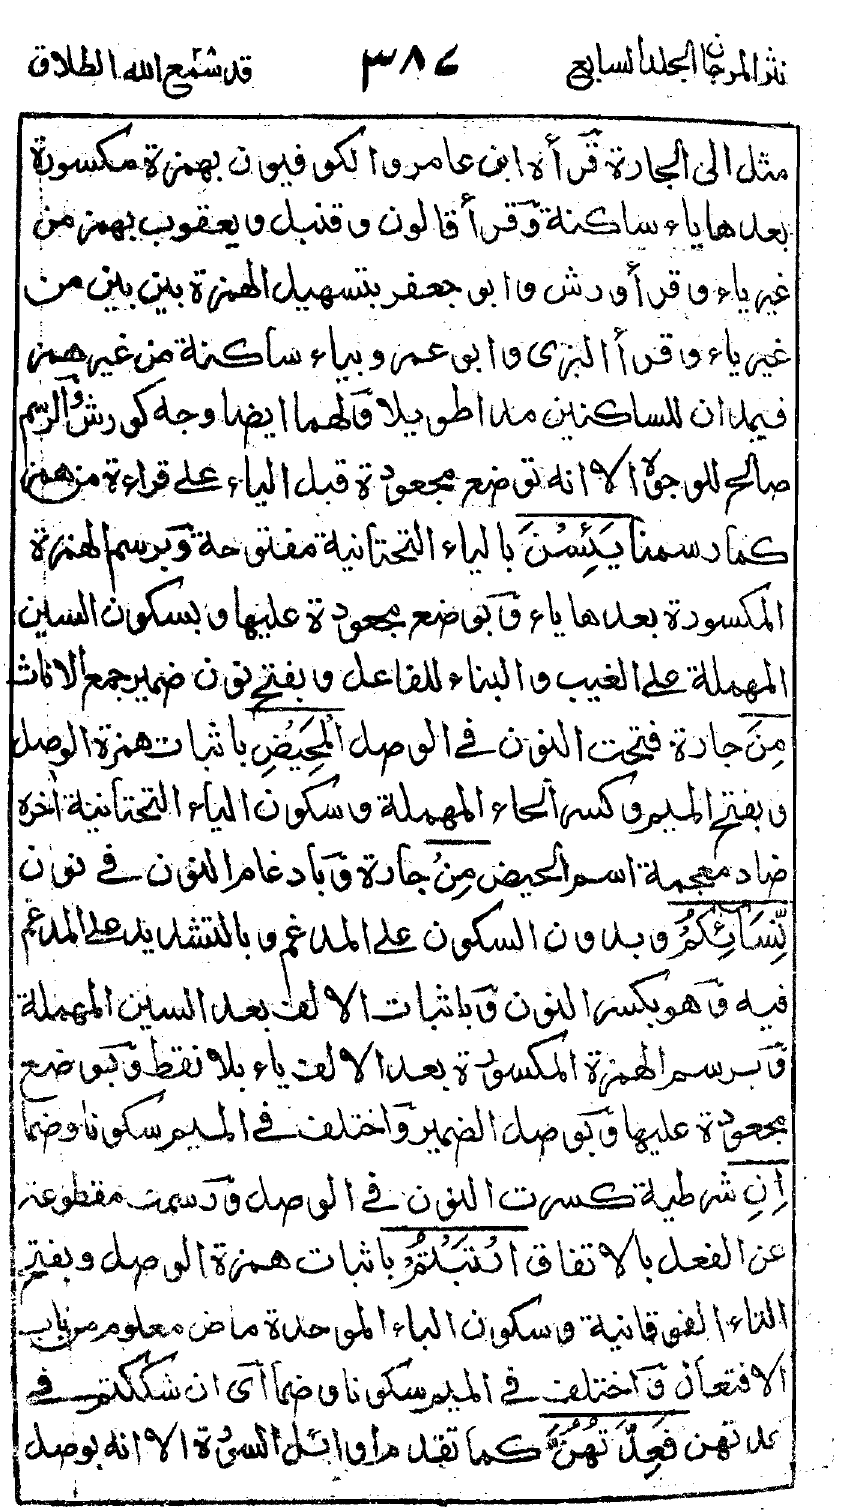 نثر المرجان المجلد السابع ٣٨٤ قد سمع الله الطلاق
مثل الى الجارة قرأه ابن عامر والكوفيون بهمزة مكسورة
بعدها ياء ساكنة وقرأ قالون وقنبل ويعقوب بهمز من
غير ياء وقرأ ورش وابو جعفر بتسهيل الهمزة بين بين من
غير ياء وقرأ البزى وابو عمرو بياء ساكنة من غير همز
فيمدان للساكنين مدا طويلا ولهما ايضا وجه كورش والرسم
صالح للوجوه الا انه توضع مجعودة قبل الياء على قراءة من همز
كما رسمنا يَئِسْنَ بالياء التحتانية مفتوحة وبرسم الهمزة
المكسورة بعدها ياء وبوضع مجعودة عليها وبسكون السين
المهملة على الغيب والبناء للفاعل وبفتح نون ضمير جمع الاناث
مِنَ جارة فتحت النون في الوصل الْمَحِيضِ باثبات همزة الوصل
وبفتح الميم وكسر الحاء المهملة وسكون الياء التحتانية آخره
ضاد معجمة اسم الحيض مِنْ جارة وبادغام النون في نون
نِّسَائِكُمْ وبدون السكون على المدغم وبالتشديد على المدغم
فيه وهو بكسر النون وباثبات الالف بعد السين المهملة
وبرسم الهمزة المكسورة بعد الالف ياء بلا نقط وبوضع
مجعودة عليها وبوصل الضمير واختلف في الميم سكونا وضما
اِنِ شرطية كسرت النون في الوصل ورسمت مقطوعة
عن الفعل بالاتفاق ارْتَبْتُمْ باثبات همزة الوصل وبفتح
التاء الفوقانية وسكون الباء الموحدة ماض معلوم من باب
الافتعال واختلف في الميم سكونا وضما اى ان شككتم في
عدتهن فَعِدَّتُهُنَّ كما تقدم اوائل السورة الا انه بوصل